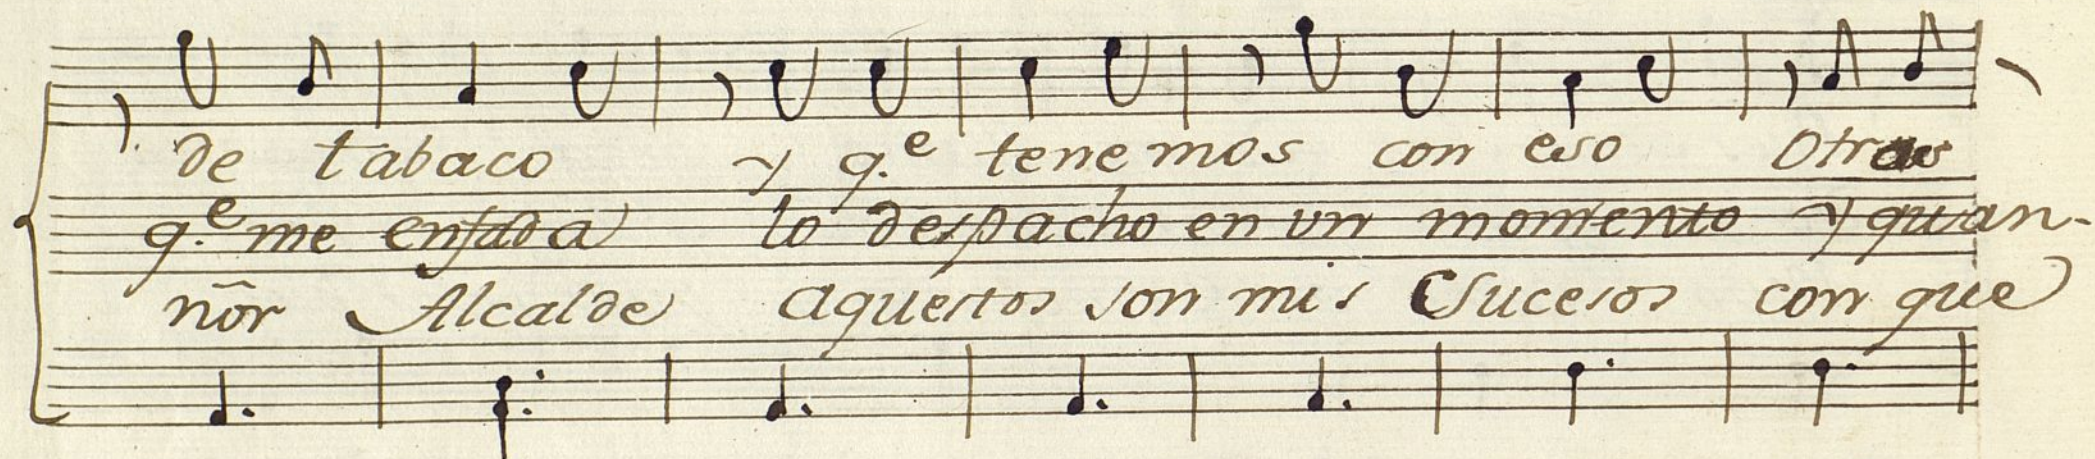 de tabaco y q.e tenemos con eso Otras
q.e me enfada lo despacho en un momento y quan-
nõr Alcalde aquestos son mis Sucesos con que